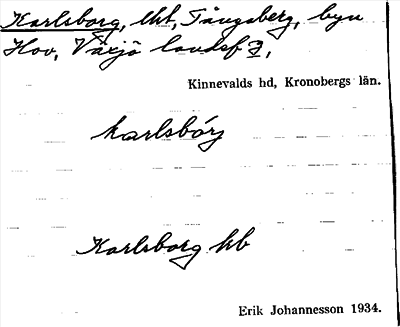 Karlsborg, lht, Tångsberg, byn
Hov, Växjö landsf 3,
Kinnevalds hd, Kronobergs län.
karlsbórj
Karlsborg hb
Erik Johannesson 1934.